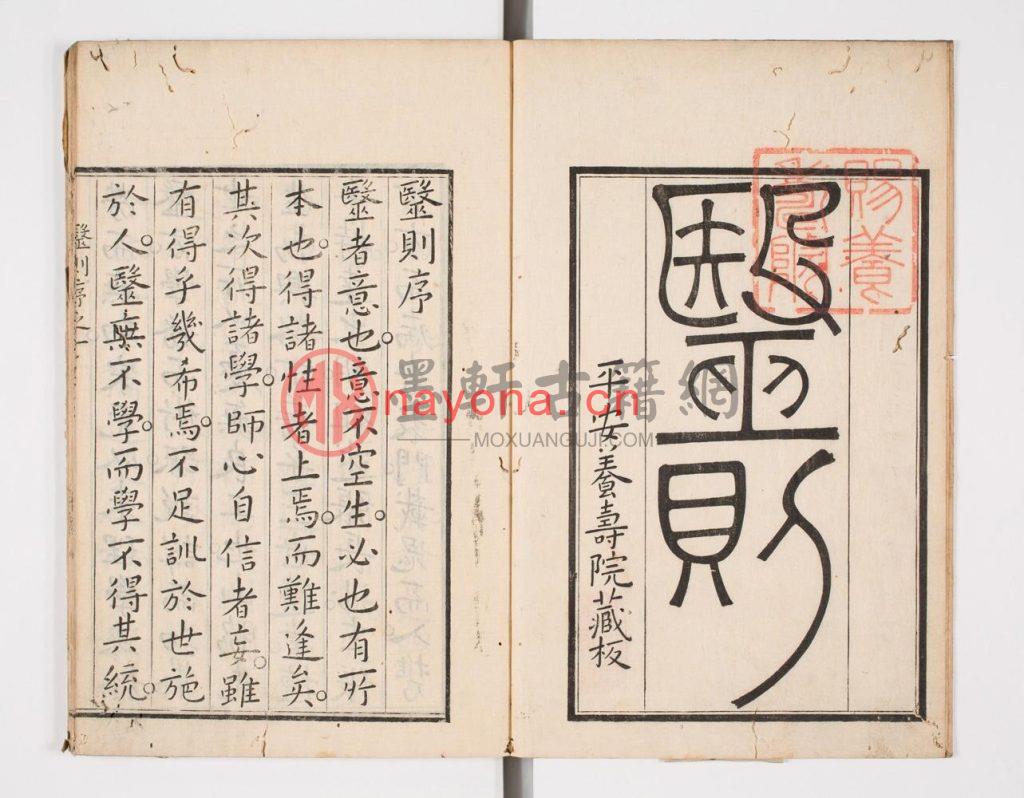 賜養
壽院
毉則
平安養壽院藏板
毉則序
毉者意也。意不空生。必也有所
本也。得諸性者上焉。而難逢矣。
其次得諸學。師心自信者妄。雖
有得乎幾希焉。不足訓於世施
於人。毉無不學。而學不得其統。
毉則序之一
墨軒古籍網
nayona.cn
MOXUANGUJI.COM